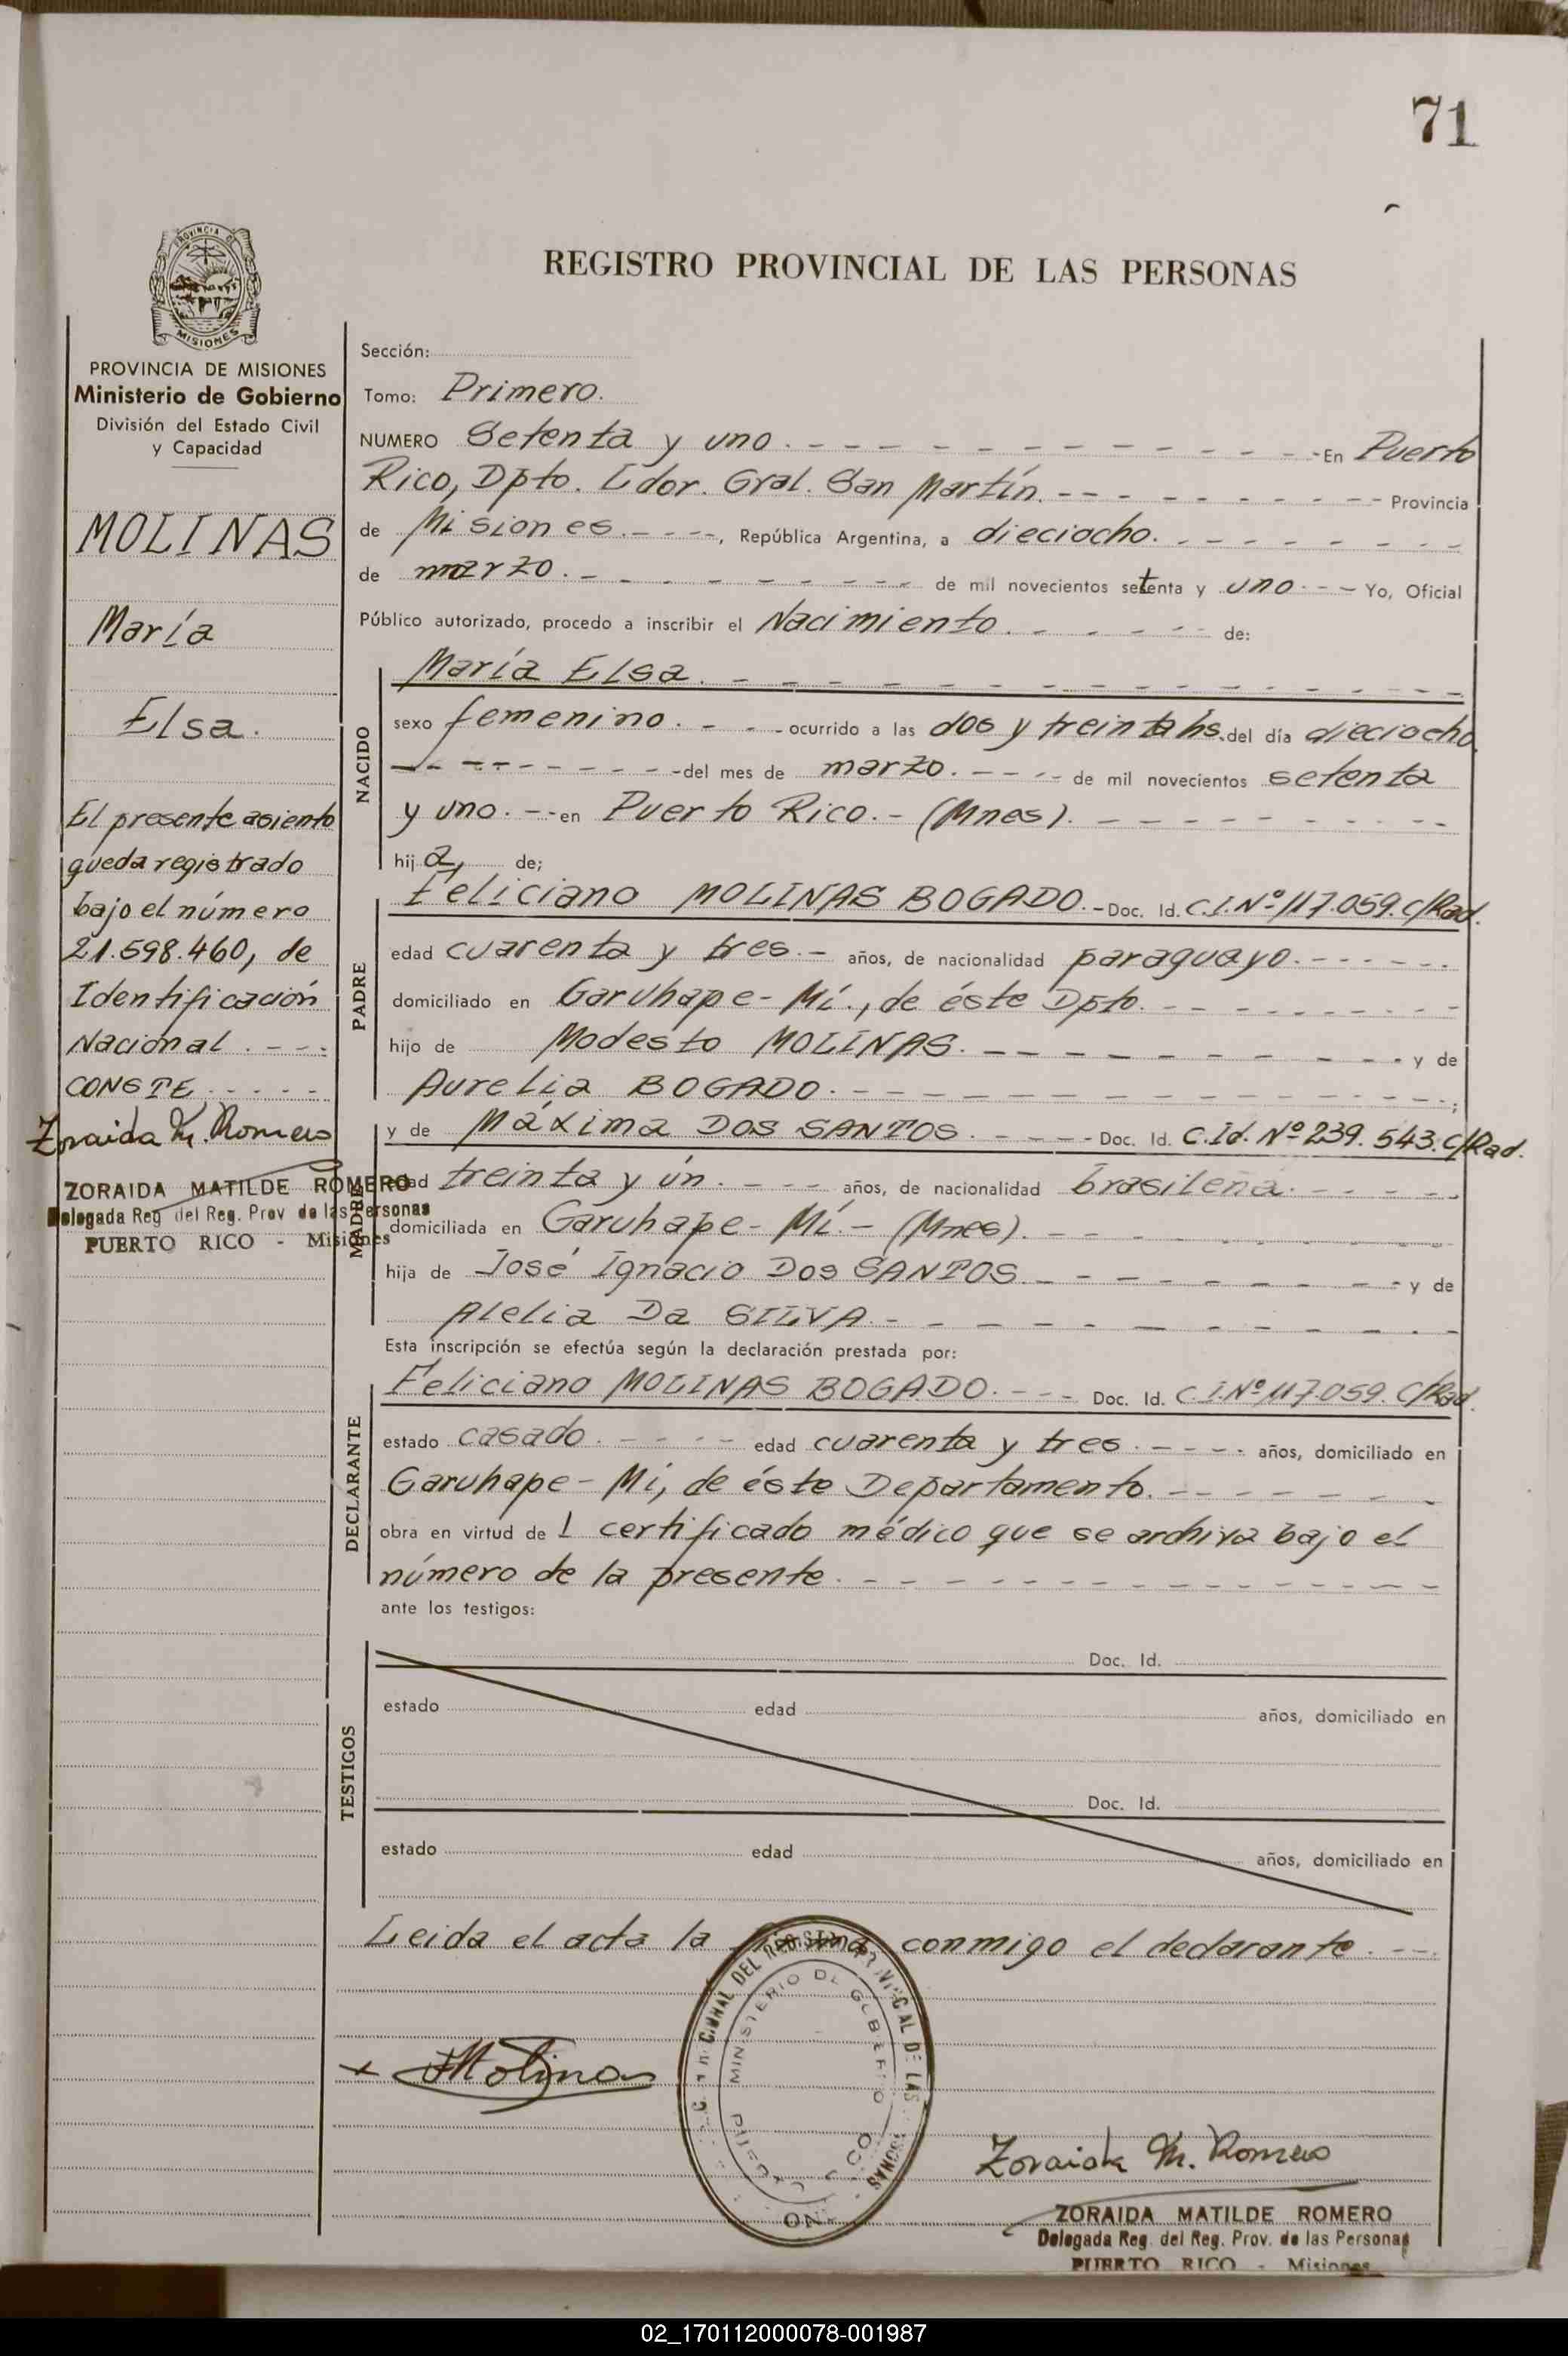 71
REGISTRO PROVINCIAL DE LAS PERSONAS
PROVINCIA DE
MISIONES
PROVINCIA DE MISIONES
Ministerio de Gobierno
División del Estado Civil
y Capacidad
MOLINAS
María
Elsa.
El presente asiento
queda registrado
bajo el número
21.598.460, de
Identificación
Nacional.---
CONSTE.----
Zoraida M. Romero
ZORAIDA MATILDE ROMERO
Delegada Reg del Reg. Prov de las Personas
PUERTO RICO - Misiones
Sección:
Tomo: Primero.
NUMERO Setenta y uno. - En Puerto
Rico, Dpto. Ldor. Gral. San Martín. - Provincia
de Misiones.----, República Argentina, a dieciocho.
de marzo. - de mil novecientos setenta y uno.-- Yo, Oficial
Público autorizado, procedo a inscribir el Nacimiento. - de:
NACIDO
María Elsa. -
sexo femenino. - ocurrido a las dos y treinta hs. del día dieciocho
- del mes de marzo. - de mil novecientos setenta
y uno. - en Puerto Rico.- (Mnes). -
hij a, de;
PADRE
Feliciano MOLINAS BOGADO.- Doc. Id. C.I.Nº 117.059.C/Rad.
edad cuarenta y tres.- años, de nacionalidad paraguayo.
domiciliado en Garuhape-Mí., de éste Dpto.
hijo de Modesto MOLINAS. - y de
Aurelia BOGADO. - ;
MADRE
y de Máxima DOS SANTOS. - Doc. Id. C.Id. Nº 239.543.C/Rad.
edad treinta y ún. - años, de nacionalidad brasileña.
domiciliada en Garuhape-Mí.- (Mnes).
hija de José Ignacio Dos SANTOS. - y de
Alelia Da SILVA.-
Esta inscripción se efectúa según la declaración prestada por:
DECLARANTE
Feliciano MOLINAS BOGADO. - Doc. Id. C.I.Nº 117.059. C/Rad.
estado casado. - edad cuarenta y tres. - años, domiciliado en
Garuhape-Mí, de éste Departamento.
obra en virtud de 1 certificado médico que se archiva bajo el
número de la presente.
ante los testigos:
TESTIGOS
Doc. Id.
estado edad años, domiciliado en
Doc. Id.
estado edad años, domiciliado en
Leida el acta la conmigo el declarante.
DEL DE LAS
MINISTERIO DE GOBIERNO
x Molinas
Zoraida M. Romero
ZORAIDA MATILDE ROMERO
Delegada Reg. del Reg. Prov. de las Personas
PUERTO RICO - Misiones
02_170112000078-001987